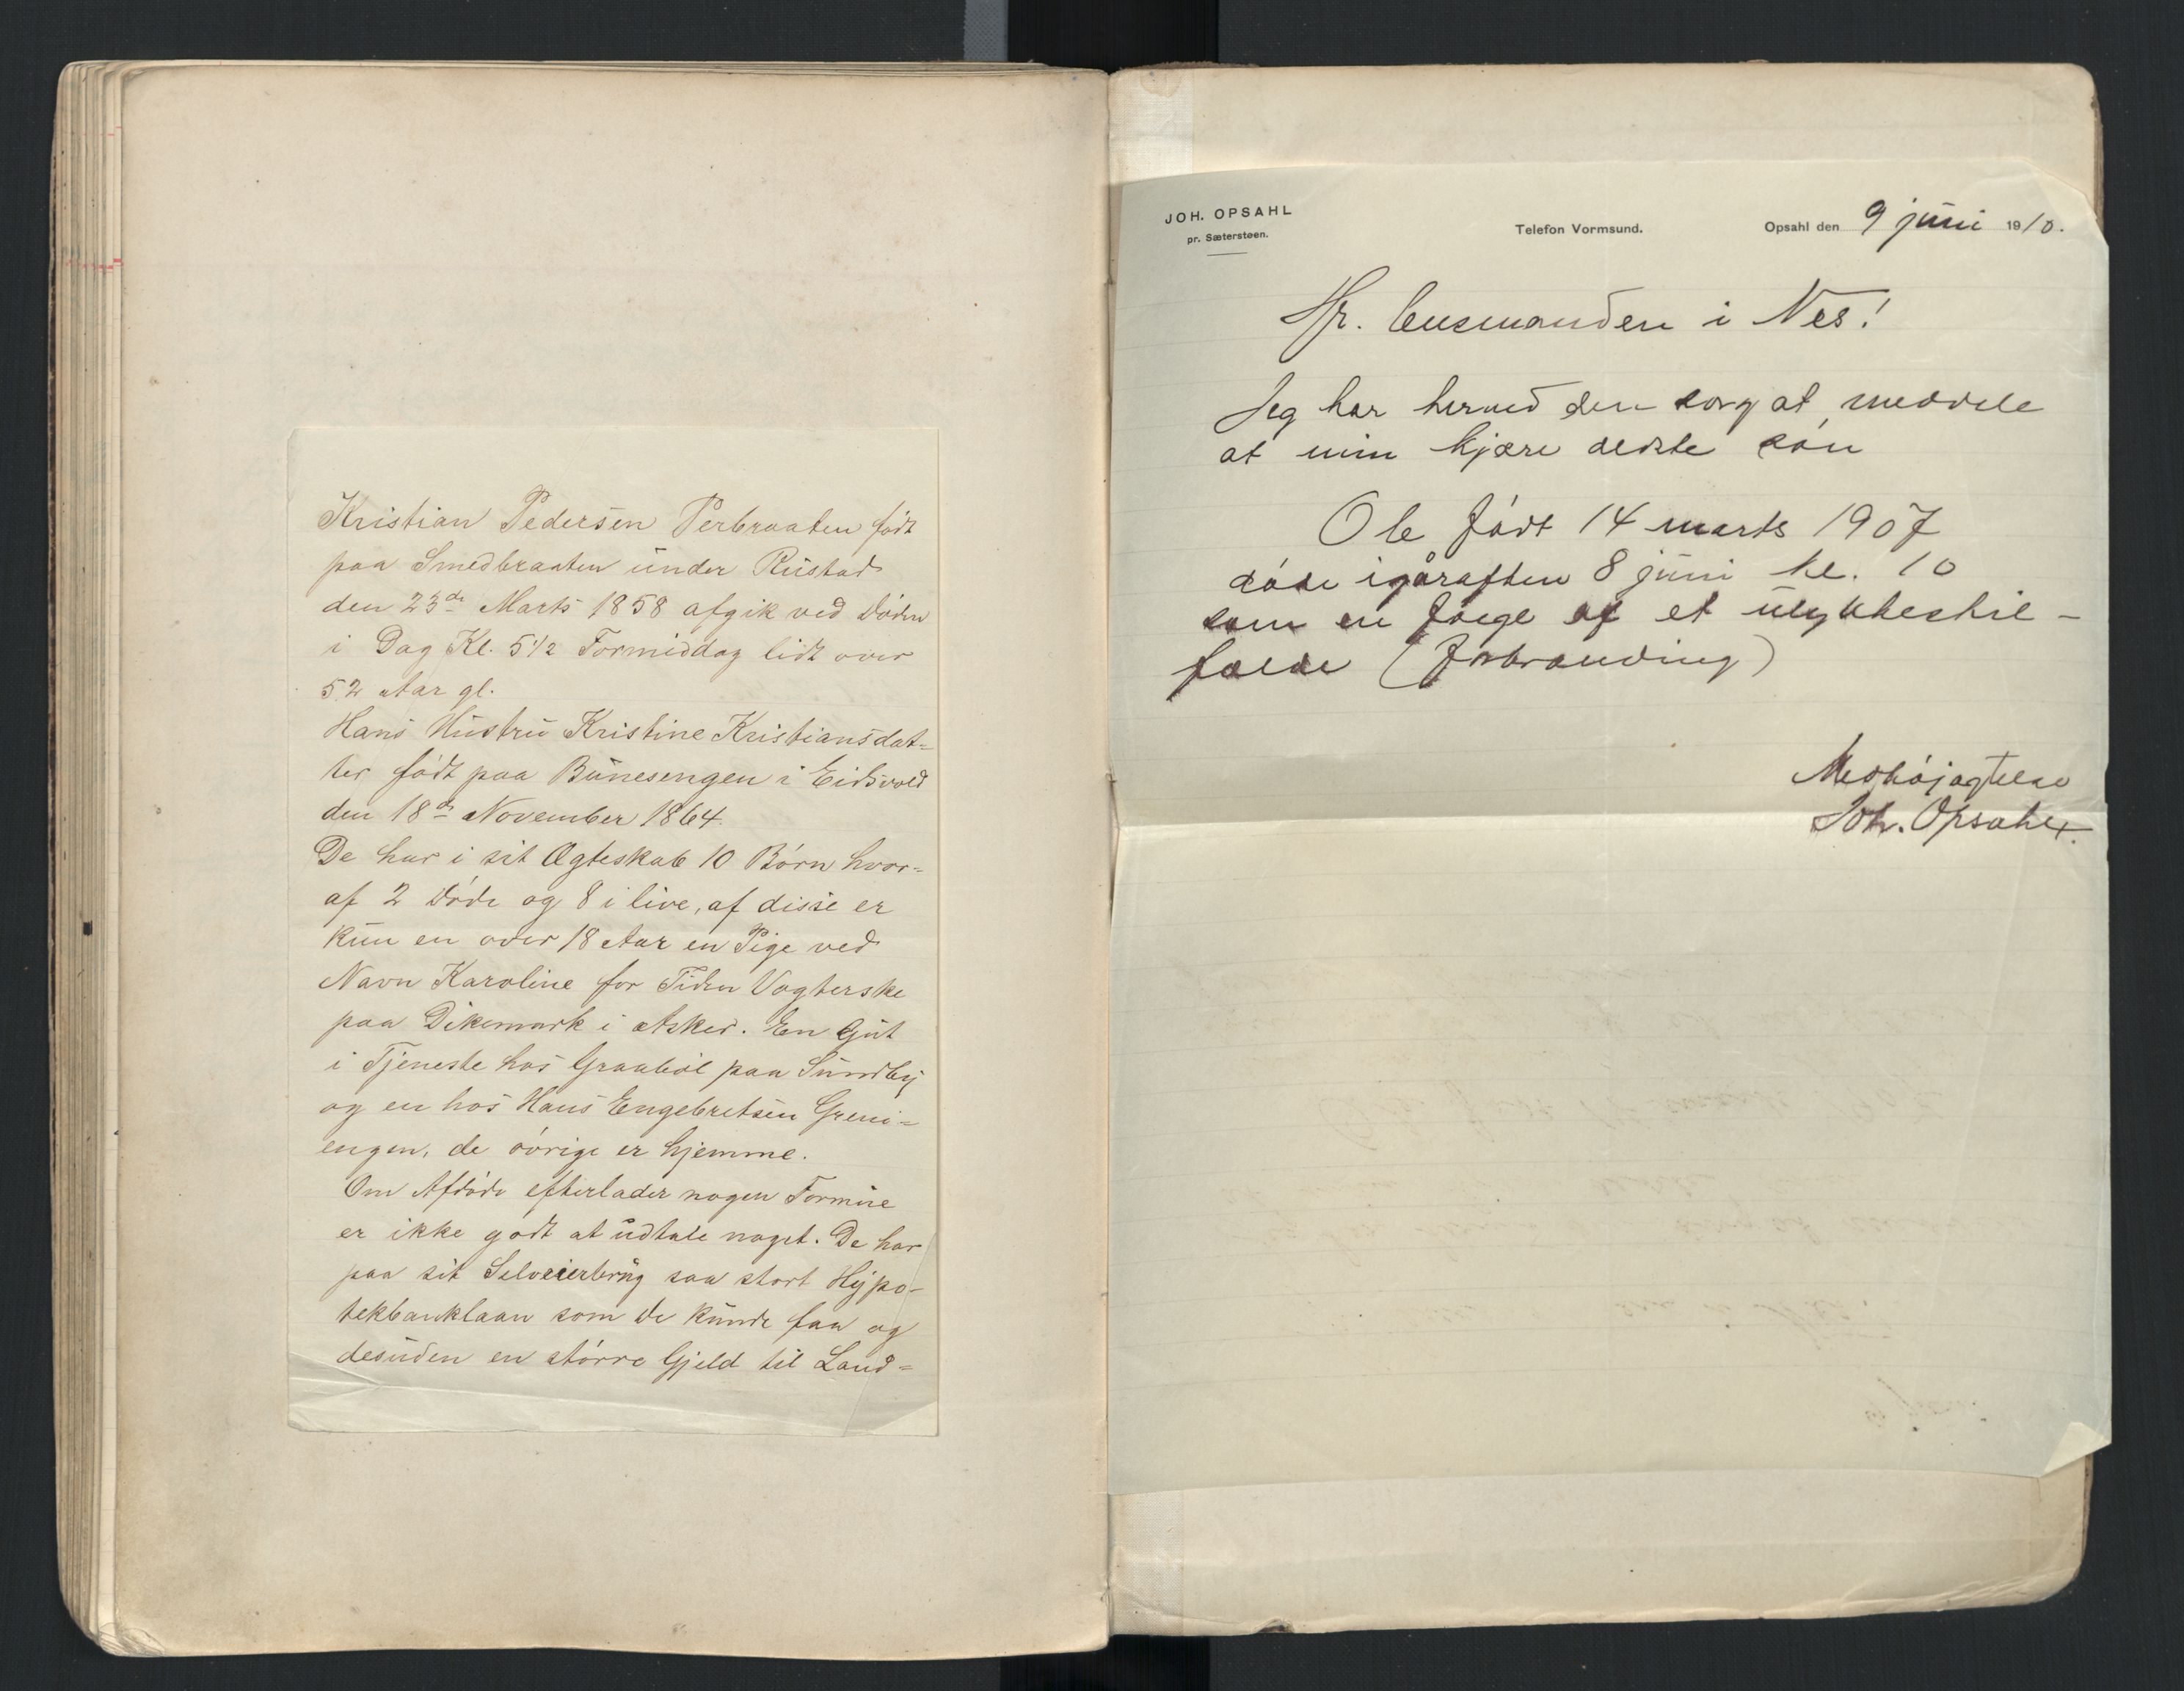 Kristian Pedersen Perbraaten født
paa Smedbraaten under Rustad
den 23de Marts 1858 afgik ved Døden
i Dag Kl. 5 1/2 Formiddag lidt over
52 Aar gl.
Hans Hustru Kristine Kristiansdat=
ter født paa Bunesengen i Eidsvold
den 18de November 1864.
De har i sit Ægteskab 10 Børn hvor=
af 2 døde og 8 i live, af disse er
kun en over 18 Aar en Pige ved
Navn Karoline for Tiden Vogterske
paa Dikemark i Asker. En Gut
i Tjeneste hos Graabøl paa Sundby
og en hos Hans Engebretsen Greni=
engen, de øvrige er hjemme.
Om Afdøde efterlader nogen Formue
er ikke godt at udtale noget. De har
paa sit Selveierbrug saa stort Hypo-
tekbanklaan som de kunde faa og
desuden en større Gjeld til Land=
JOH. OPSAHL
pr. Sæterstøen.
Telefon Vormsund.
Opsahl den 9 juni 1910.
Hr. lensmanden i Nes!
Jeg har herved den sorg at meddele
at min kjære ældste søn
Ole født 14 marts 1907
døde igåraften 8 juni kl. 10
som en følge af et ulykkestil-
fælde (forbrænding)
Med høj agtelse
Joh. Opsahl.